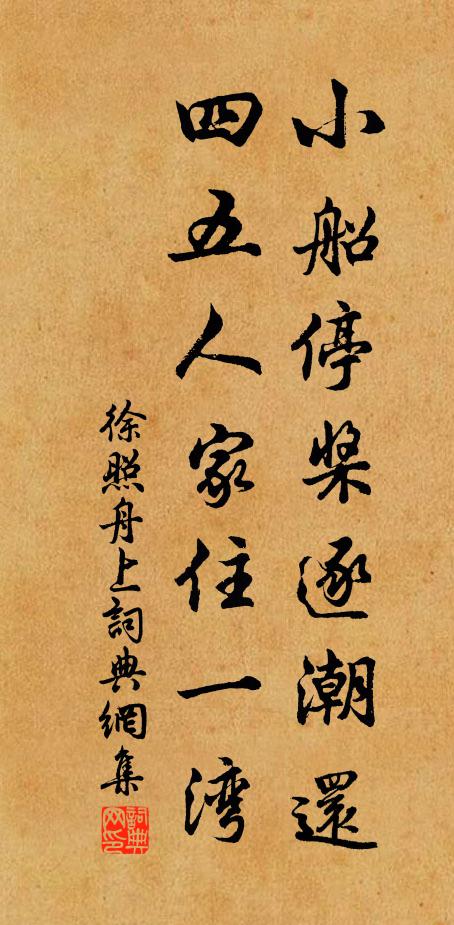 小船停桨逐潮還
四五人家住一湾
徐照舟上詞典網集
詞典網印